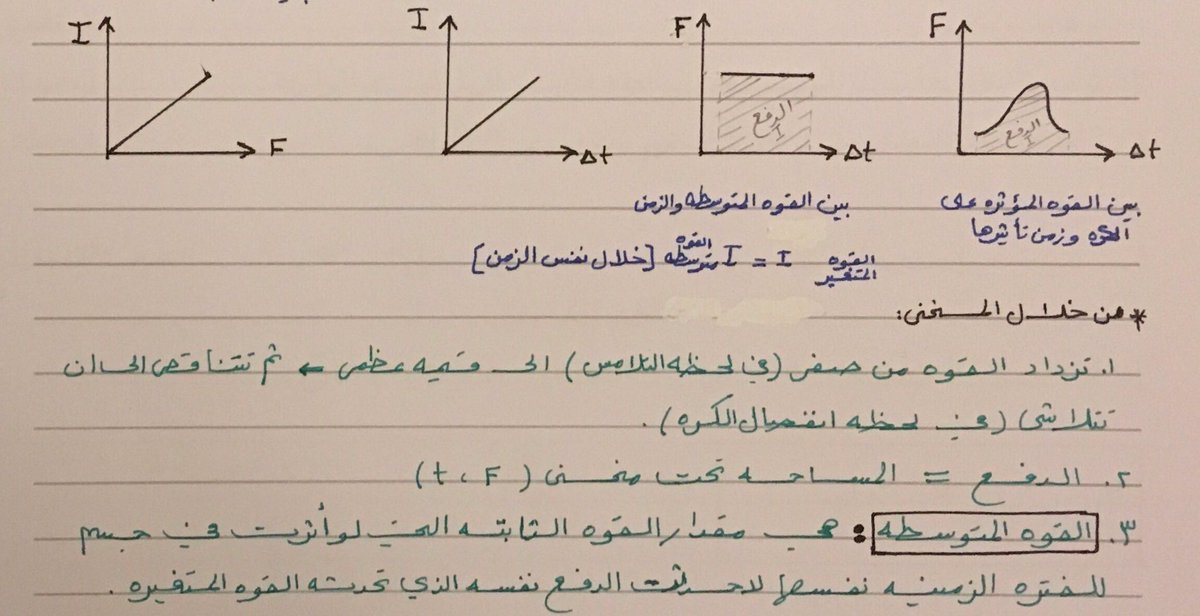 I F
I Δt
F الدفع I Δt
F الدفع I Δt
بين القوه المتوسطه والزمن
بين القوه المؤثره على الكره وزمن تأثيرها
I القوه المتغير = I القوه متوسطه [خلال نفس الزمن]
* من خلال المنحنى:
١. تزداد القوه من صفر (في لحظه التلامس) الى قيمه عظمى ← ثم تتناقص الى ان
تتلاشى (في لحظه انفصال الكره).
٢. الدفع = المساحه تحت منحنى (F ، t)
٣. القوه المتوسطه : هي مقدار القوه الثابته التي لو أثرت في جسم
للفتره الزمنيه نفسها لاحدثت الدفع نفسه الذي تحدثه القوه المتغيره.